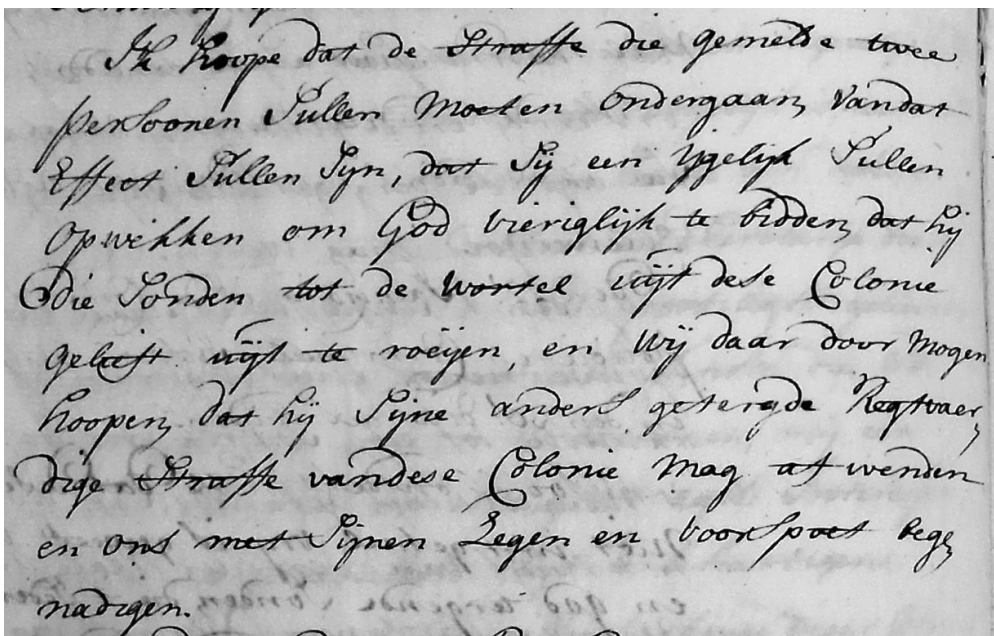 Ik hoope dat de Straffe die gemelde twee
persoonen Sullen moeten ondergaan, vandat
Effect Sullen Sijn, dat Sij een ijgelijk Sullen
opwekken om God vieriglijk te bidden, dat hij
die Sonden tot de wortel uijt dese Colonie
gelieft uijt te roeijen, en wij daar door mogen
hoopen, dat hij Sijne anders getergde Regtvaer,
dige Straffe vandese Colonie mag af wenden
en ons met Sijnen Zegen en voorspoet bege,
nadigen.